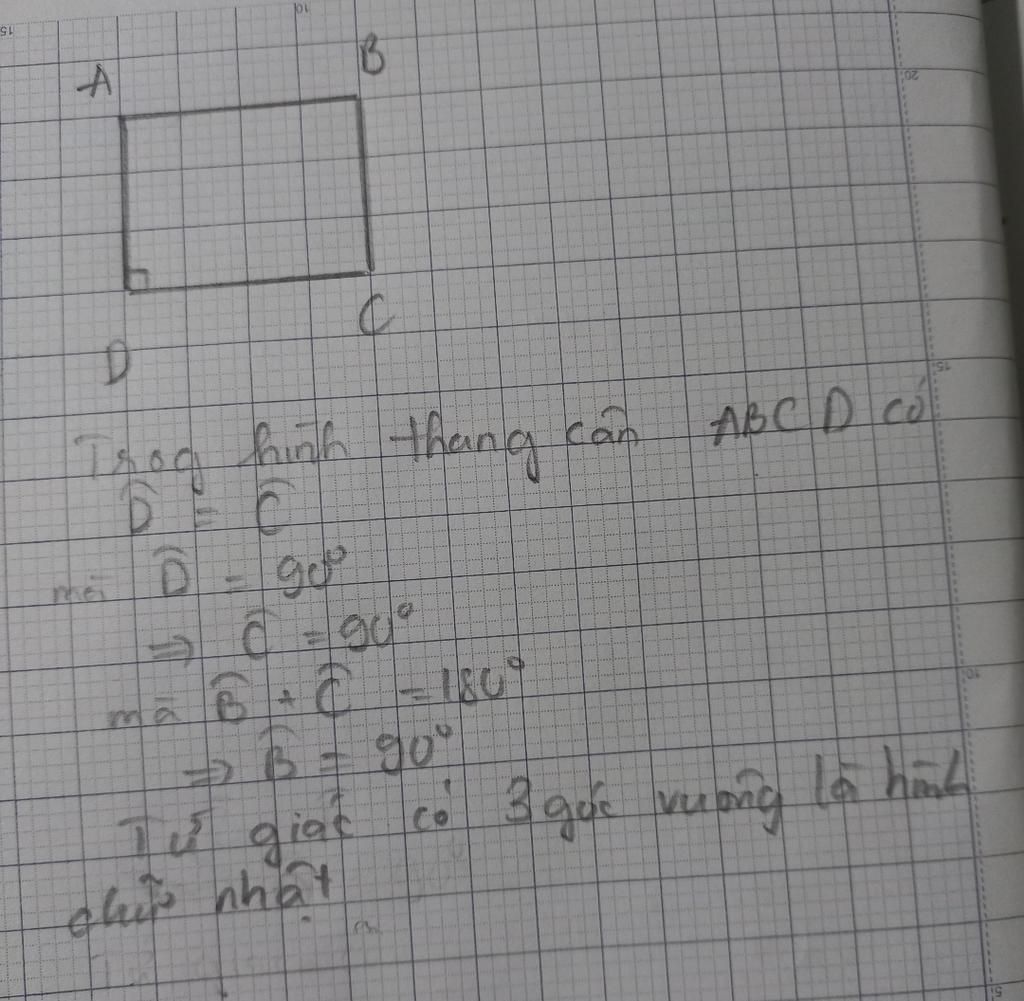 A
B
C
D
Trog hình thang cân ABCD có
D̂ = Ĉ
mà D̂ = 90°
⇒ Ĉ = 90°
mà B̂ + Ĉ = 180°
⇒ B̂ = 90°
Tứ giác có 3 góc vuông là hình
chữ nhật
10
15
20
15
10
5